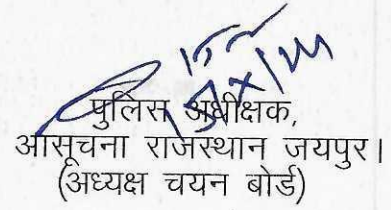 पुलिस अधीक्षक,
आसूचना राजस्थान जयपुर।
(अध्यक्ष चयन बोर्ड)